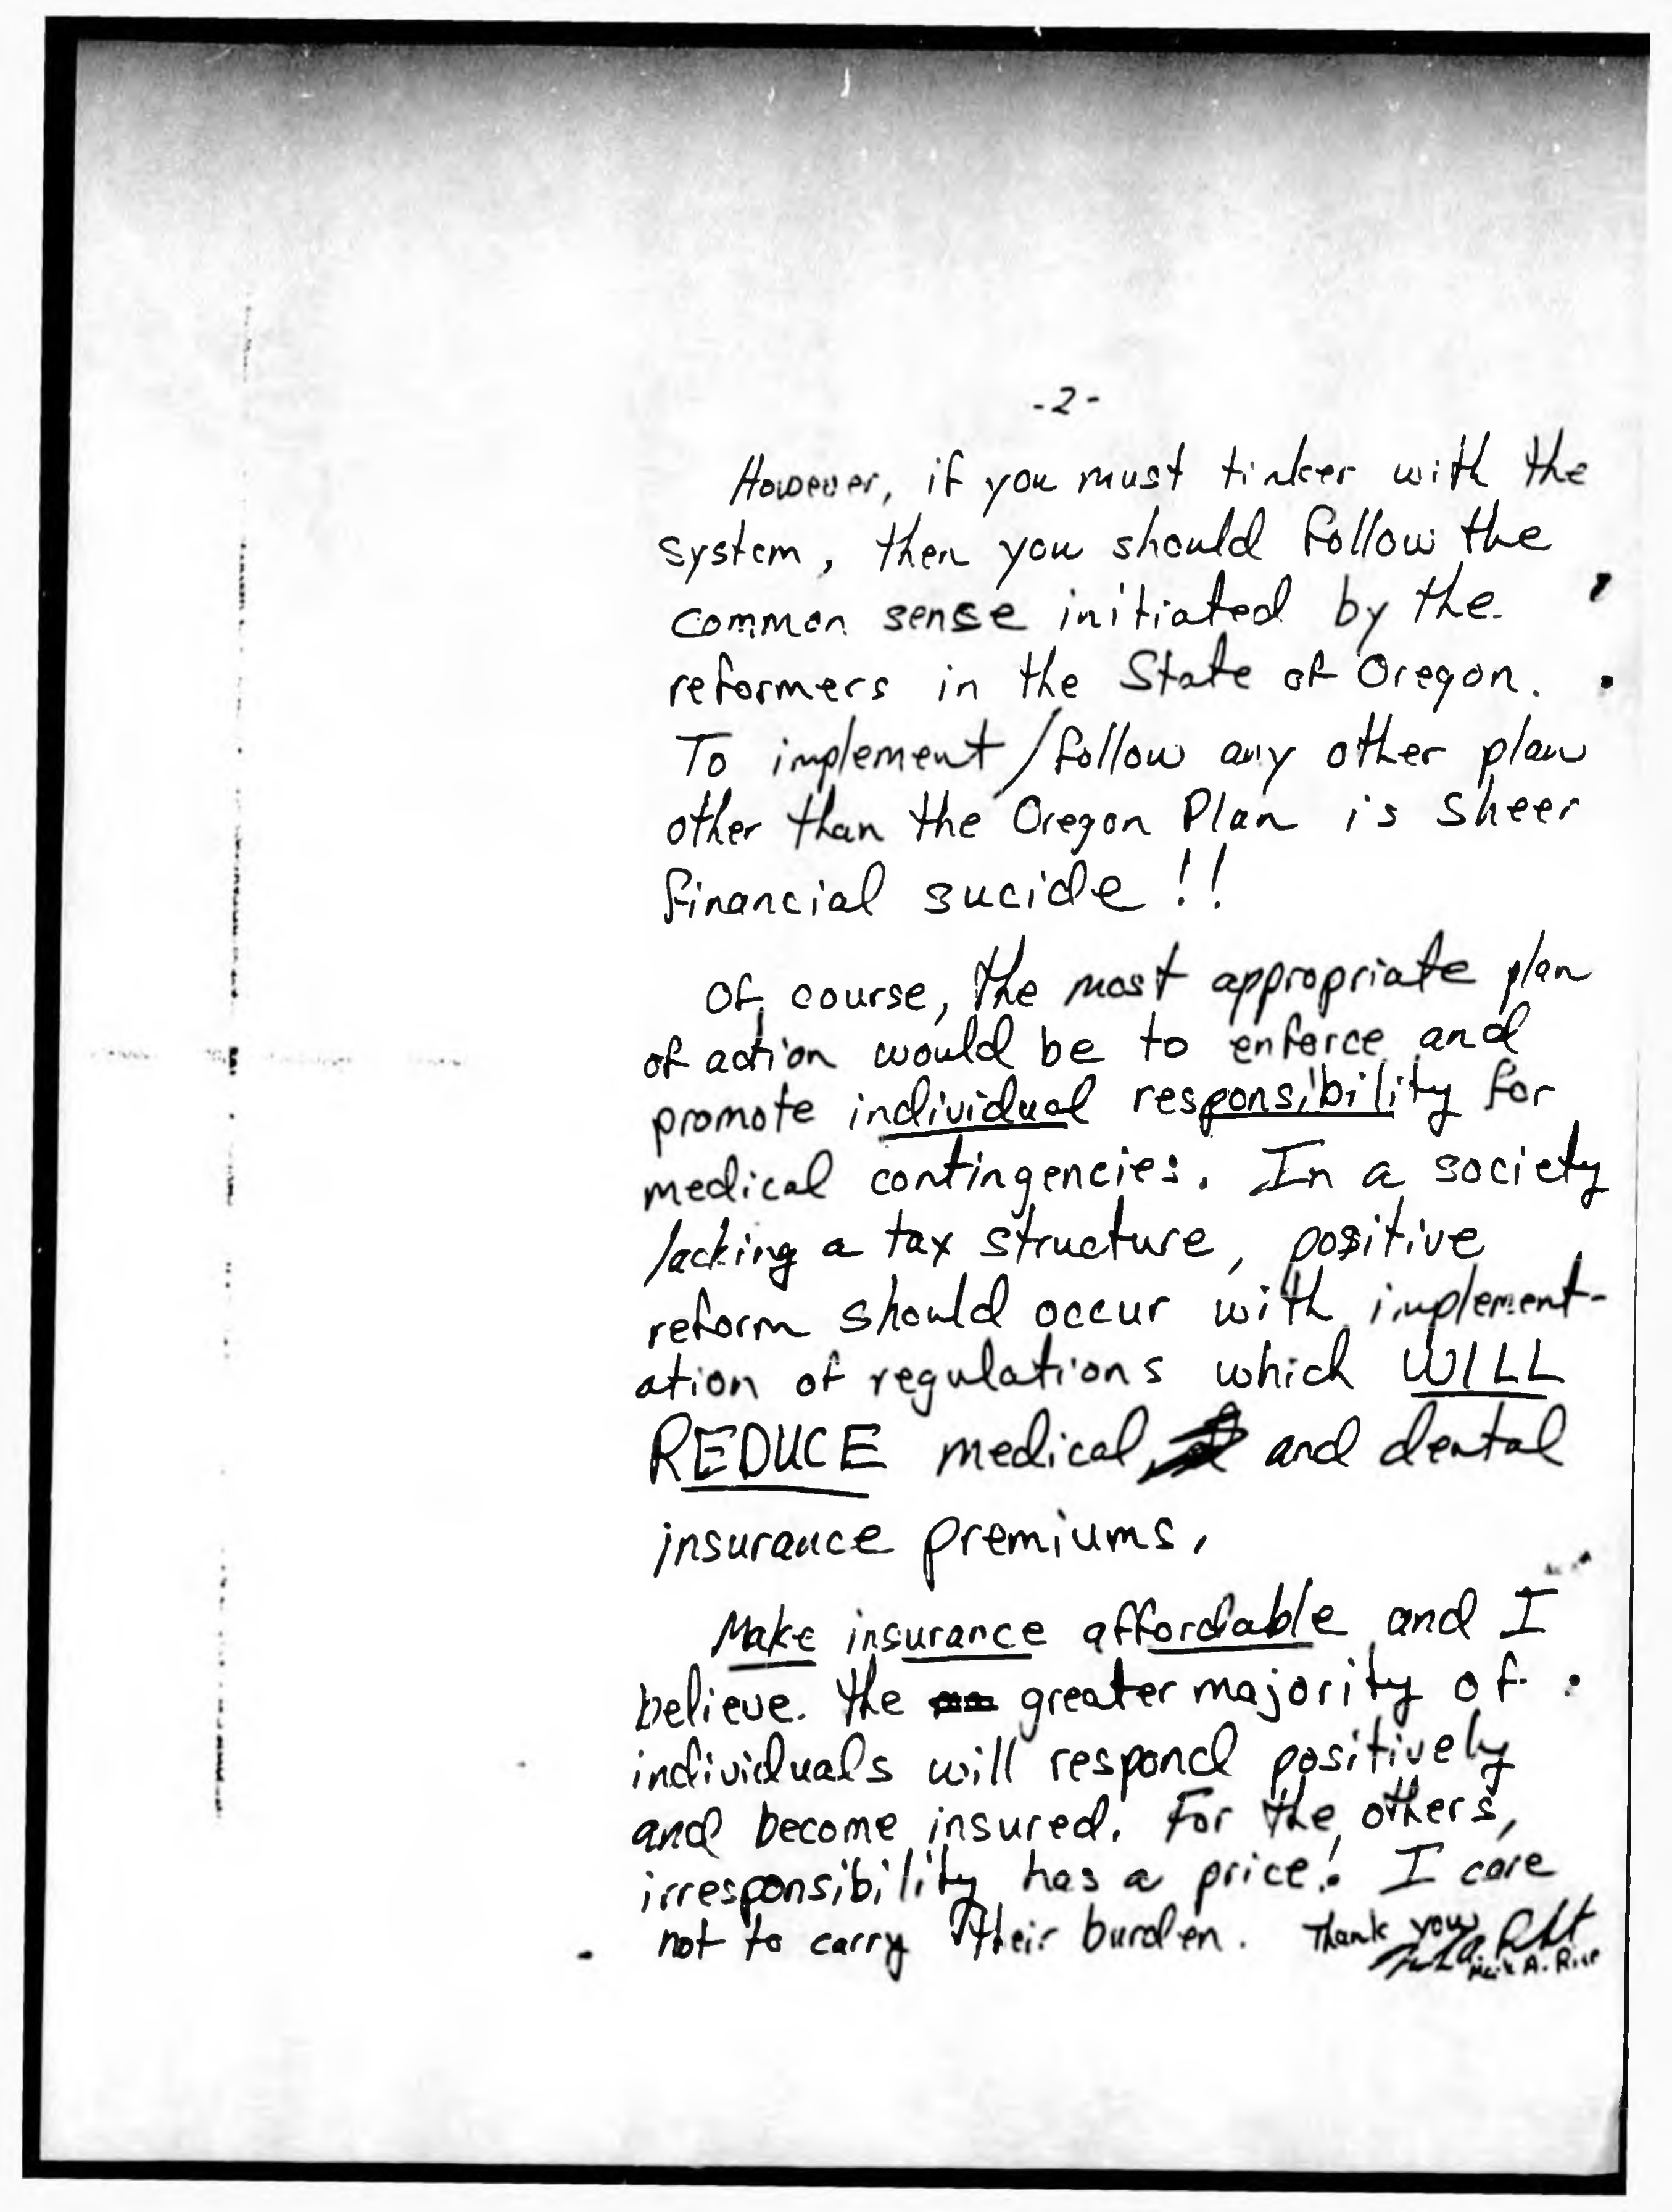 -2-
However, if you must tinker with the
system, then you should follow the
common sense initiated by the
reformers in the State of Oregon.
To implement/follow any other plan
other than the Oregon Plan is sheer
financial sucide!!
Of course, the most appropriate plan
of action would be to enforce and
promote individual responsibility for
medical contingencies. In a society
lacking a tax structure, positive
reform should occur with implement-
ation of regulations which WILL
REDUCE medical and dental
insurance premiums.
Make insurance affordable and I
believe the greater majority of
individuals will respond positively
and become insured. For the others,
irresponsibility has a price! I care
not to carry their burden. Thank you
A.